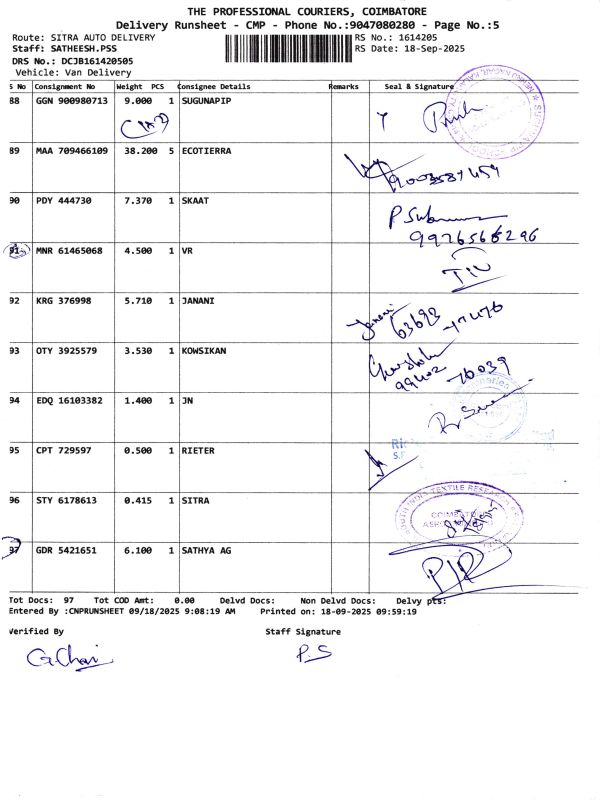 THE PROFESSIONAL COURIERS, COIMBATORE
Delivery Runsheet - CMP - Phone No.:9047080280 - Page No.:5
Route: SITRA AUTO DELIVERY RS No.: 1614205
Staff: SATHEESH.PSS RS Date: 18-Sep-2025
DRS No.: DCJB161420505
Vehicle: Van Delivery
S No Consignment No Weight PCS Consignee Details Remarks Seal & Signature
88 GGN 900980713 9.000 1 SUGUNAPIP
89 MAA 709466109 38.200 5 ECOTIERRA
90 PDY 444730 7.370 1 SKAAT
P Subramani
9976566296
91 MNR 61465068 4.500 1 VR
92 KRG 376998 5.710 1 JANANI
Janani 63693
93 OTY 3925579 3.530 1 KOWSIKAN
99402 70039
94 EDQ 16103382 1.400 1 JN
95 CPT 729597 0.500 1 RIETER
96 STY 6178613 0.415 1 SITRA
SOUTH INDIA TEXTILE RESEARCH
97 GDR 5421651 6.100 1 SATHYA AG
Tot Docs: 97 Tot COD Amt: 0.00 Delvd Docs: Non Delvd Docs: Delvy pts:
Entered By :CNPRUNSHEET 09/18/2025 9:08:19 AM Printed on: 18-09-2025 09:59:19
Verified By Staff Signature
P.S